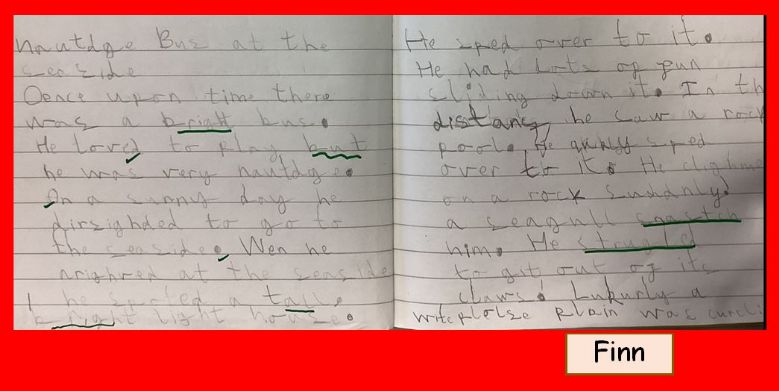 nautdge Bus at the
seaside
Oence upon time there
was a bright bus.
He loved to play but
he was very nautdge.
On a sunny day he
dirsighded to go to
the seaside. Wen he
arighred at the seaside
he spoted a tall
bright light house.
He sped over to it.
He had lots of fun
sliding down it. In th
distans he saw a rock
pool. He sped
over to it. He
on a rock Suddanly
a seagull
him. He struged
to git out of its
claws. Lukurly a
plain was
Finn